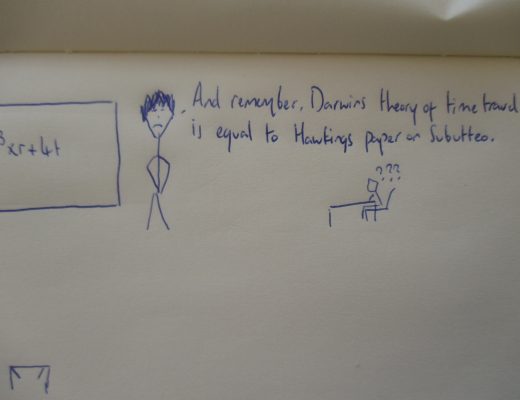 And remember, Darwins theory of time travel
is equal to Hawkings paper on Subutteo.
xr+4t
???